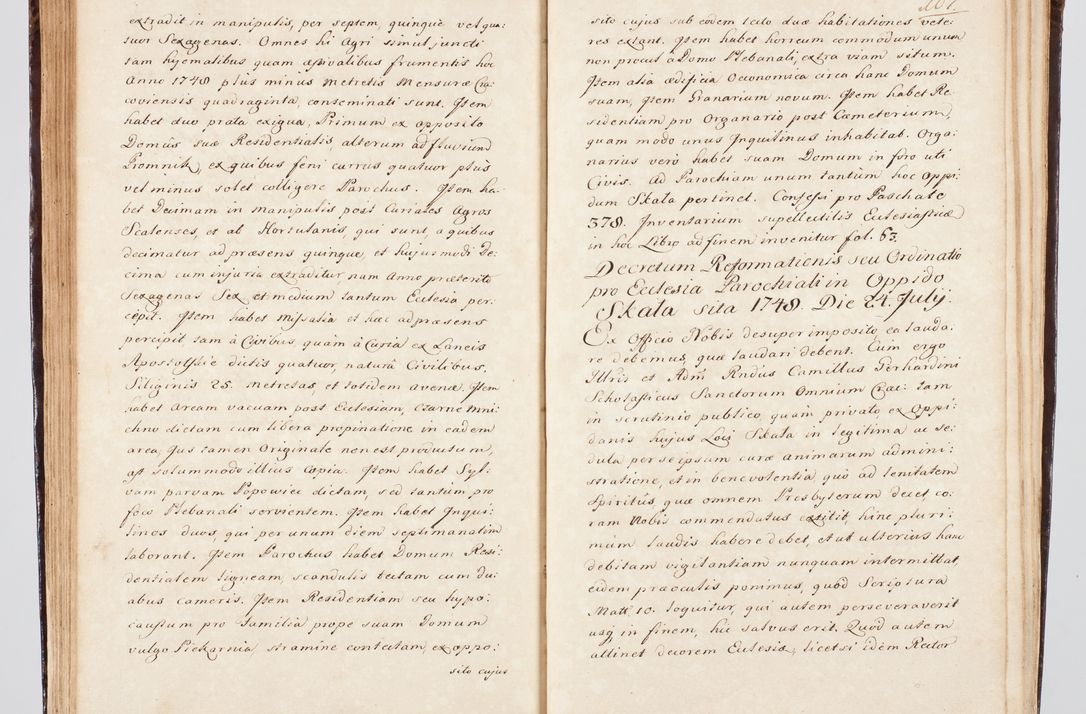 extradit in manipulis, per septem, quinque vel qua:
tuor Sexagenas. Omnes hi Agri simul juncti
tam hyemalibus quam æstivalibus frumentis hoc
Anno 1748 plus minus metretis Mensuræ Cra:
coviensis quadraginta, conseminati sunt. Item
habet duo prata exigua, Primum ex opposito
Domûs suæ Residentialis, alterum ad fluvium
Promnik, ex quibus feni currus quatuor plus
vel minus solet colligere Parochus. Item ha:
bet Decimam in manipulis post Curiales Agros
Scalenses, et ab Hortulanis, qui sunt, a quibus
decimatur ad præsens quinque, et hujusmodi De:
cima cum injuria extraditur, nam Anno præterito
Sexagenas Sex et medium tantum Ecclesia per:
cepit. Item habet Missalia et hæc ad præsens
percipit tam à Civibus, quam à Curia ex Laneis
Apostolskie dictis quatuor, naturâ Civilibus,
Siliginis 25. metretas, et totidem avenæ. Item
habet Aream vacuam post Ecclesiam, Czarne mni:
chno dictam cum libera propinatione in eadem
area, Jus tamen Originale non est productum,
ast solummodo illius Copia. Item habet Syl:
vam parvam Popowiec dictam, sed tantum pro
foco Plebanali servientem. Item habet Inqui:
linos duos, qui per unum diem septimanatim
laborant. Item Parochus habet Domum Resi:
dentialem ligneam, scandulis tectam cum du:
abus cameris. Item Residentiam seu hypo:
caustum pro Familia prope suam Domum
vulgo Piekarnia, stramine contectam, ex oppo:
sito cujus
sito cujus sub eodem tecto duæ habitationes vete:
res extant. Item habet horreum commodum unum
non procul à Domo Plebanali, extra viam situm.
Item alia ædificia Oeconomica circa hanc Domum
suam, Item Granarium novum. Item habet Re:
sidentiam pro Organario post Cæmeterium,
quam modo unus Inquilinus inhabitat. Orga:
narius verò habet suam Domum in foro uti
Civis. Ad Parochiam unum tantùm hoc Oppi:
dum Skala pertinet. Confessi pro Paschate
378. Inventarium supellectilis Ecclesiasticæ
in hoc Libro ad finem invenitur fol. 63.
Decretum Reformationis seu Ordinatio
pro Ecclesia Parochiali in Oppido
Skala sita 1748. Die 24. Julij.
Ex Officio Nobis desuper imposito ea lauda:
re debemus, quæ laudari debent. Cùm ergo
Illris et Adm Rndus Camillus Gerhardini
Scholasticus Sanctorum Omnium Crac: tam
in scrutinio publico, quam privato, ex oppi:
danis hujus Loci Skala in legitima ac se:
dula per se ipsum curæ animarum admini:
stratione, et in benevolentia, quò ad lenitatem
Spiritûs, quæ omnem Presbyterum decet, co:
ram Nobis commendatus extitit, hinc pluri:
mum laudis habere debet, et ut ulterius hanc
debitam vigilantiam nunquam intermittat,
eidem præ oculis ponimus, quòd Scriptura
Matt: 10. loquitur, qui autem perseveraverit
usq; in finem, hic salvus erit. Quod autem
attinet decorem Ecclesiæ, licet si idem Rector